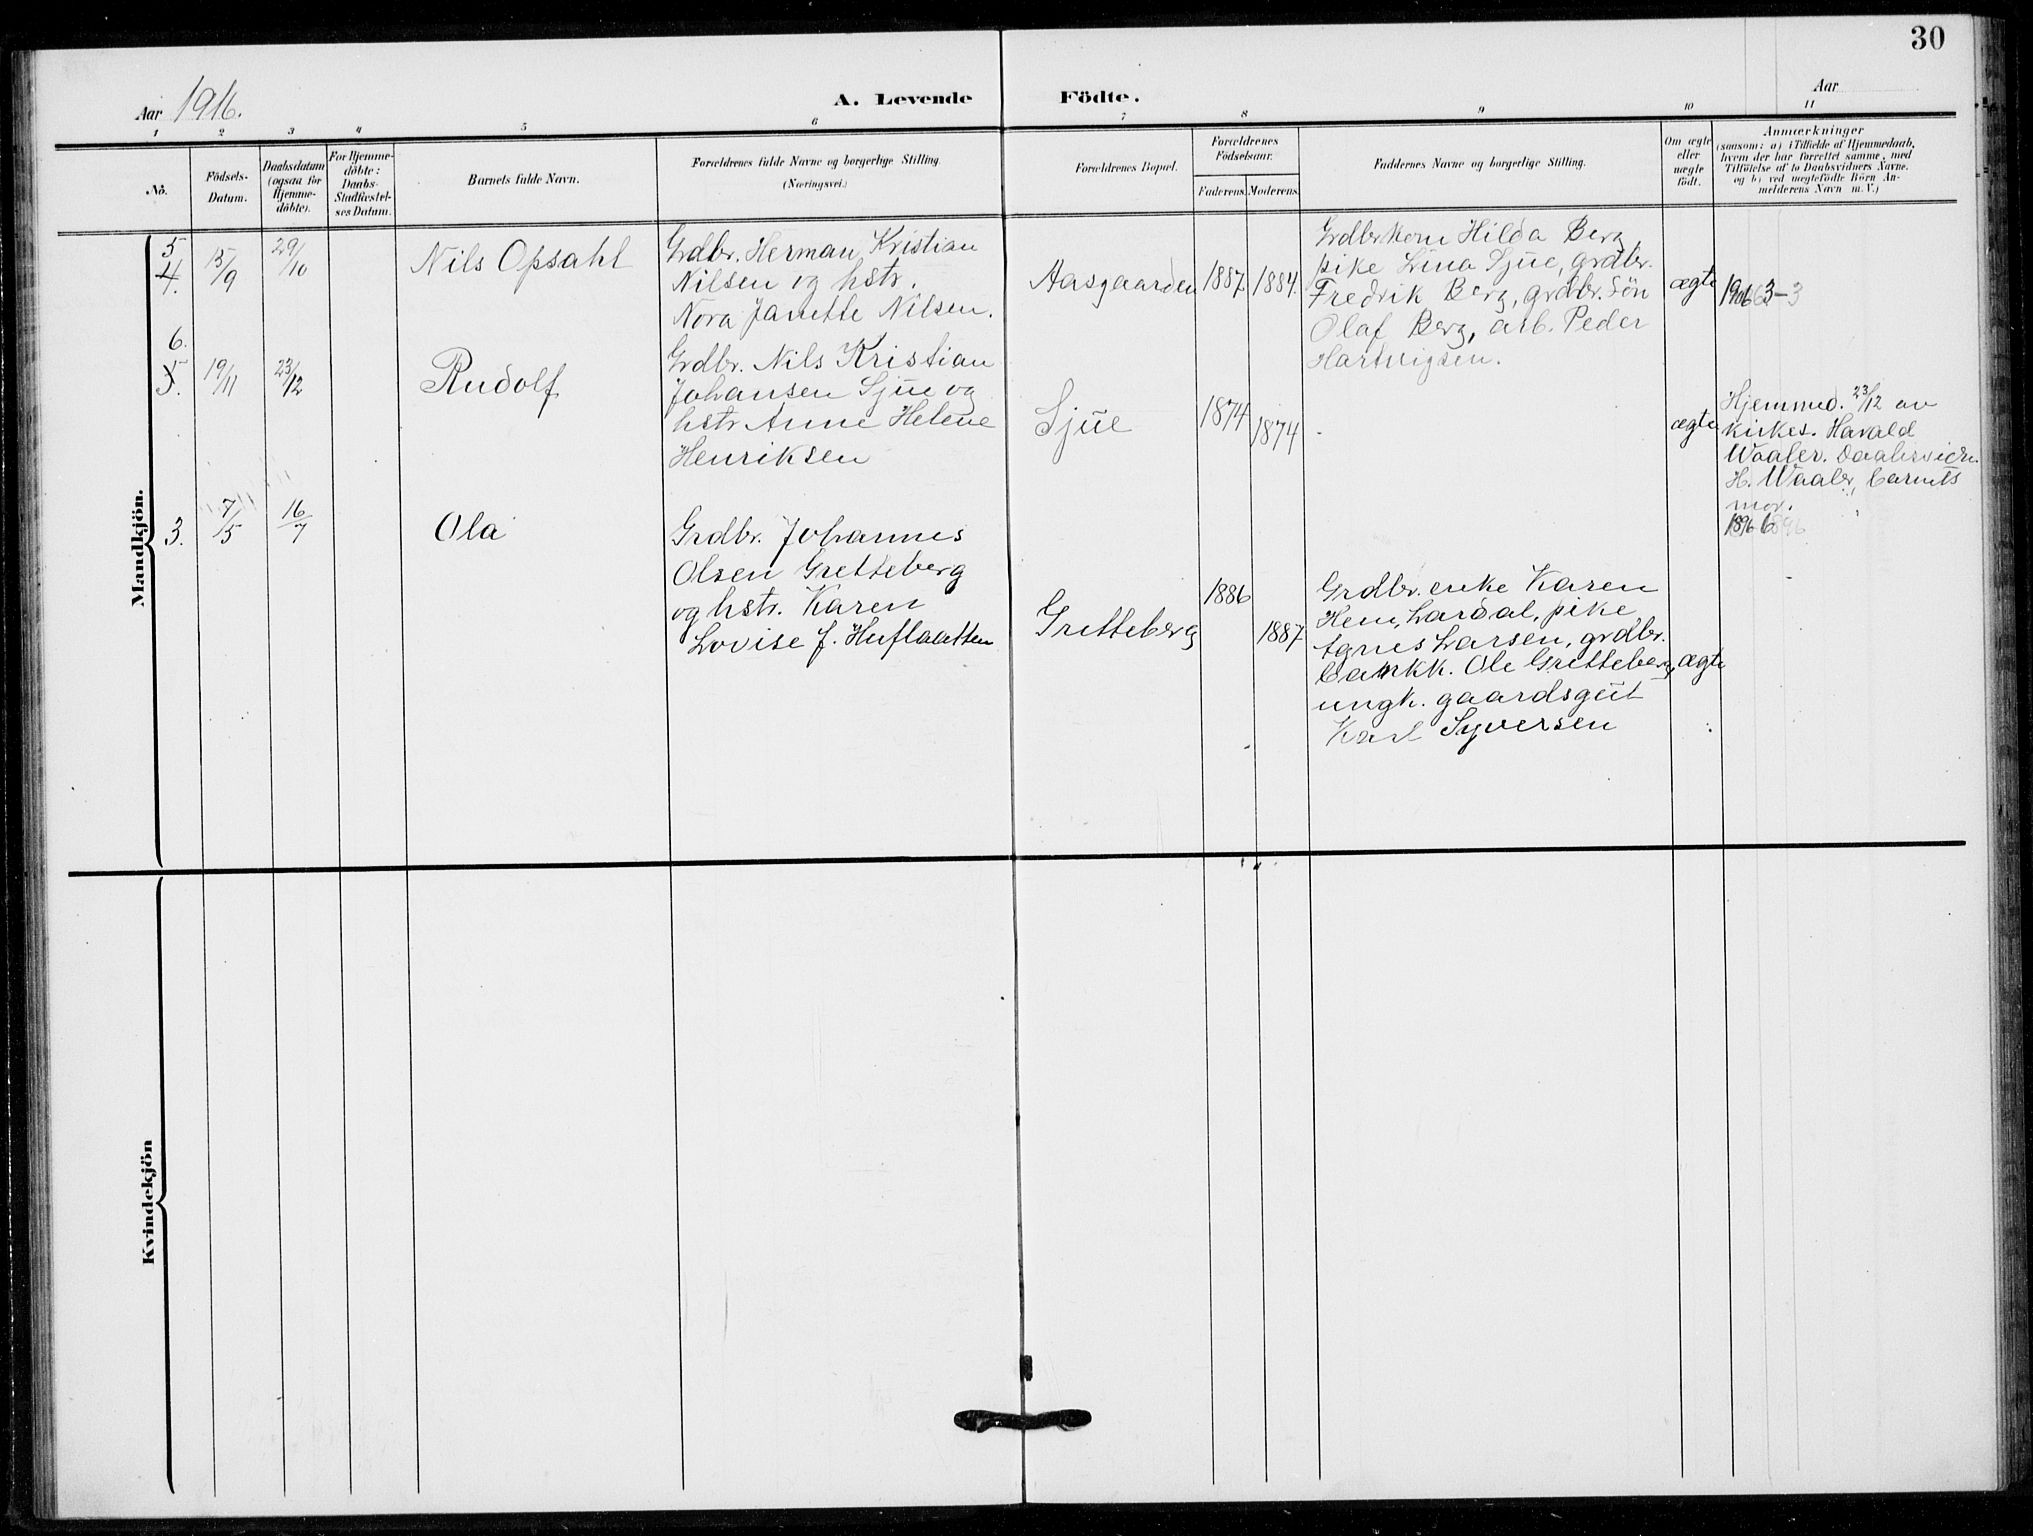 30
Aar 1916.
A. Levende Födte.
Aar
1 2 3 4 5 6 7 8 9 10 11
No.
Födsels-
Datum.
Daabsdatum
(ogsaa for
Hjemme-
döbte).
For Hjemme-
döbte:
Daabs-
Stadfæstel-
ses Datum.
Barnets fulde Navn.
Forældrenes fulde Navne og borgerlige Stilling.
(Næringsvei.)
Forældrenes Bopæl.
Forældrenes
Födselsaar.
Faderens. Moderens.
Faddernes Navne og borgerlige Stilling.
Om ægte
eller
uægte
födt.
Anmærkninger
(saasom: a) i Tilfælde af Hjemmedaab,
hvem der har forrettet samme, med
Tilföielse af to Daabsvidners Navne.
og b) ved uægtefödte Börn An-
melderens Navn m. V.)
Mandkjön.
5
4.
15/9
29/10
Nils Opsahl
Grdbr. Herman Kristian
Nilsen og hstr.
Nora Janette Nilsen.
Aasgaarden
1887.
1884.
Grdbrkone Hilda Berg,
pike Lina Sjue, grdbr.
Fredrik Berg, grdbr. sön
Olaf Berg, arb. Peder
Hartvigsen.
ægte
6.
5.
19/11
23/12
Rudolf
Grdbr. Nils Kristian
Johansen Sjue og
hstr Anne Helene
Henriksen
Sjue
1874
1874
ægte
Hjemmed. 23/12 av
kirkes. Harald
Waaler. Daabsvidn.
H. Waaler, barnets
mor.
3.
7/5
16/7
Ola
Grdbr. Johannes
Olsen Gretteberg
og hstr. Karen
Lovise f. Huflaatten
Gretteberg
1886
1887
Grdbr. enke Karen
Hem, Lardal, pike
Agnes Larsen, grdbr.
Ole Gretteberg,
ungk. gaardsgut
Karl Syversen
ægte
Kvindekjön